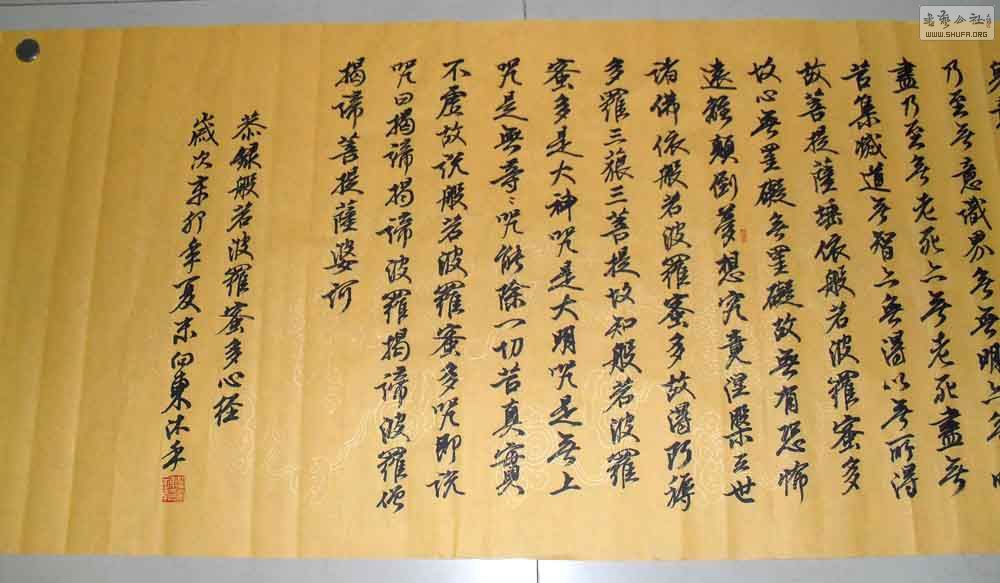 乃至無意識界無無明亦無
盡乃至無老死亦無老死盡無
苦集滅道無智亦無得以無所得
故菩提薩埵依般若波羅蜜多
故心無罣礙無罣礙故無有恐怖
遠離顛倒夢想究竟涅槃三世
諸佛依般若波羅蜜多故得阿耨
多羅三藐三菩提故知般若波羅
蜜多是大神咒是大明咒是無上
咒是無等〻咒能除一切苦真實
不虛故說般若波羅蜜多咒即說
咒曰揭諦揭諦波羅揭諦波羅僧
揭諦菩提薩婆訶
恭錄般若波羅蜜多心經
歲次辛卯年夏末向東沐手
WWW.SHUFA.ORG